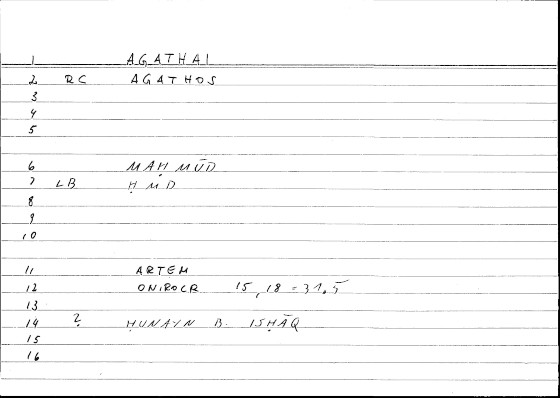 1 AGATHAI
2 RC AGATHOS
3
4
5
6 MAḤMŪD
7 LB ḤMD
8
9
10
11 ARTEM
12 ONIROCR 15,18 = 31.5
13
14 ? ḤUNAYN B. ISḤĀQ
15
16